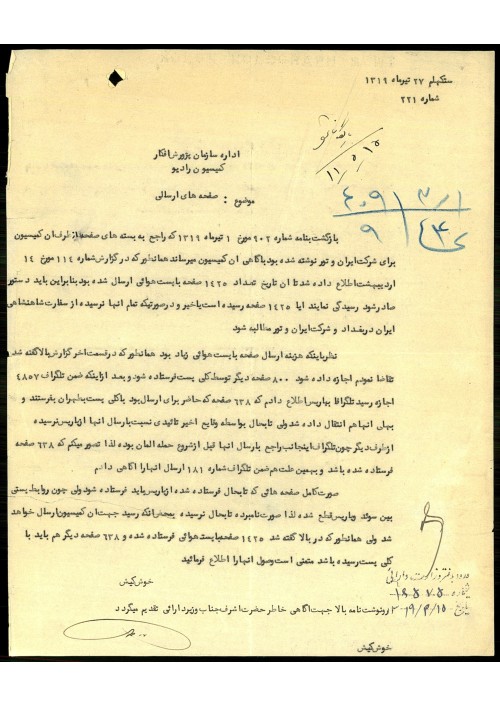 ستکهلم ۲۷ تیرماه ۱۳۱۹
شماره ۲۲۱
اداره سازمان پرورش افکار
کمیسیون رادیو
موضوع : صفحه های ارسالی
بازگشت بنامه شماره ۹۰۲ مورخ ۱ تیرماه ۱۳۱۹ که راجع به بسته های صفحه از طرف ان کمیسیون
برای شرکت ایران و تور نوشته شده بود باگاهی ان کمیسیون میرساند همانطور که در گزارش شماره ۱۱۴ مورخ ۱۴
اردیبهشت اطلاع داده شد تا ان تاریخ تعداد ۱۴۲۵ صفحه با پست هوائی ارسال شده بود بنابراین باید دستور
صادر شود رسیدگی نمایند ایا ۱۴۲۵ صفحه رسیده است یا خیر و در صورتیکه تمام انها نرسیده از سفارت شاهنشاهی
ایران در بغداد و شرکت ایران و تور مطالبه شود
نظر باینکه هزینه ارسال صفحه با پست هوائی زیاد بود همانطور که در قسمت اخر گزارش بالا گفته شد
تقاضا نمودم اجازه داده شود ۸۰۰ صفحه دیگر توسط کلی پست فرستاده شود و بعد از اینکه ضمن تلگراف ۴۸۵۷
اجازه رسید تلگرافا بپاریس اطلاع دادم که ۶۳۸ صفحه که حاضر برای ارسال بود با کلی پست بطهران بفرستند و
پولی انها هم انتقال داده شد ولی تابحال بواسطه وقایع اخیر تائیدی نسبت بارسال انها از پاریس نرسیده
از طرف دیگر چون تلگراف اینجانب راجع بارسال انها قبل از شروع حمله المان بود لذا تصور میکنم که ۶۳۸ صفحه
فرستاده شده باشد و بهمین علت هم ضمن تلگراف شماره ۱۸۱ ارسال انها را اگاهی دادم
صورت کامل صفحه هائی که تابحال فرستاده شده از پاریس باید فرستاده شود ولی چون روابط پستی
بین سوئد و پاریس قطع شده لذا صورت نامبرده تابحال نرسیده بمحض انکه رسید جهت ان کمیسیون ارسال خواهد
شد ولی همانطور که در بالا گفته شد ۱۴۲۵ صفحه با پست هوائی فرستاده شده و ۶۳۸ صفحه دیگر هم باید با
کلی پست رسیده باشد متمنی است وصول انها را اطلاع فرمائید
خوش کیش
رونوشت نامه بالا جهت اگاهی خاطر حضرت اشرف جناب وزیر دارائی تقدیم میگردد
خوش کیش